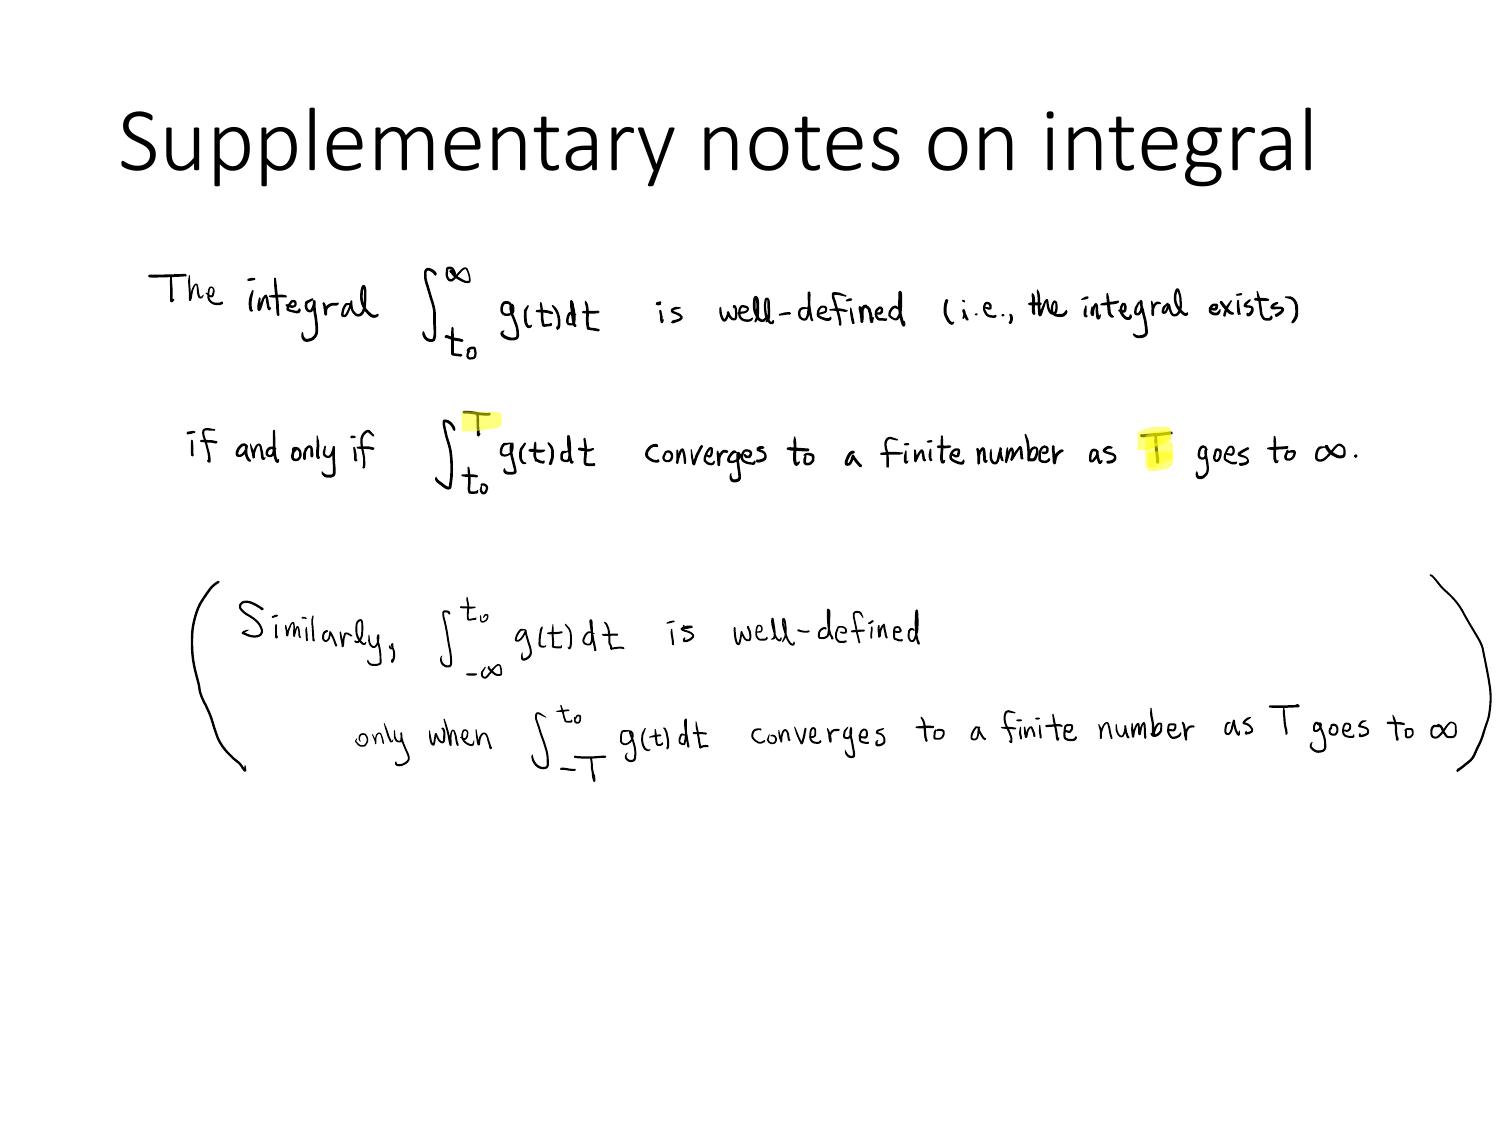 Supplementary notes on integral
The integral ∫_{t₀}^{∞} g(t)dt is well-defined (i.e., the integral exists)
if and only if ∫_{t₀}^{T} g(t)dt converges to a finite number as T goes to ∞.
(Similarly, ∫_{-∞}^{t₀} g(t)dt is well-defined
only when ∫_{-T}^{t₀} g(t)dt converges to a finite number as T goes to ∞)